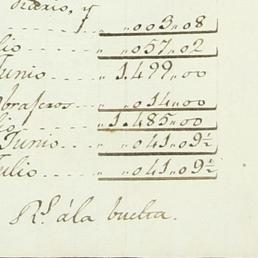 diario, y
1 ,,003,,08
lio ,,057,,02
Junio 1.499,,00
,,014,,00
lio 1.485,,00
Junio ,,041,,09½
Julio ,,041,,09½
Rs. á la buelta.